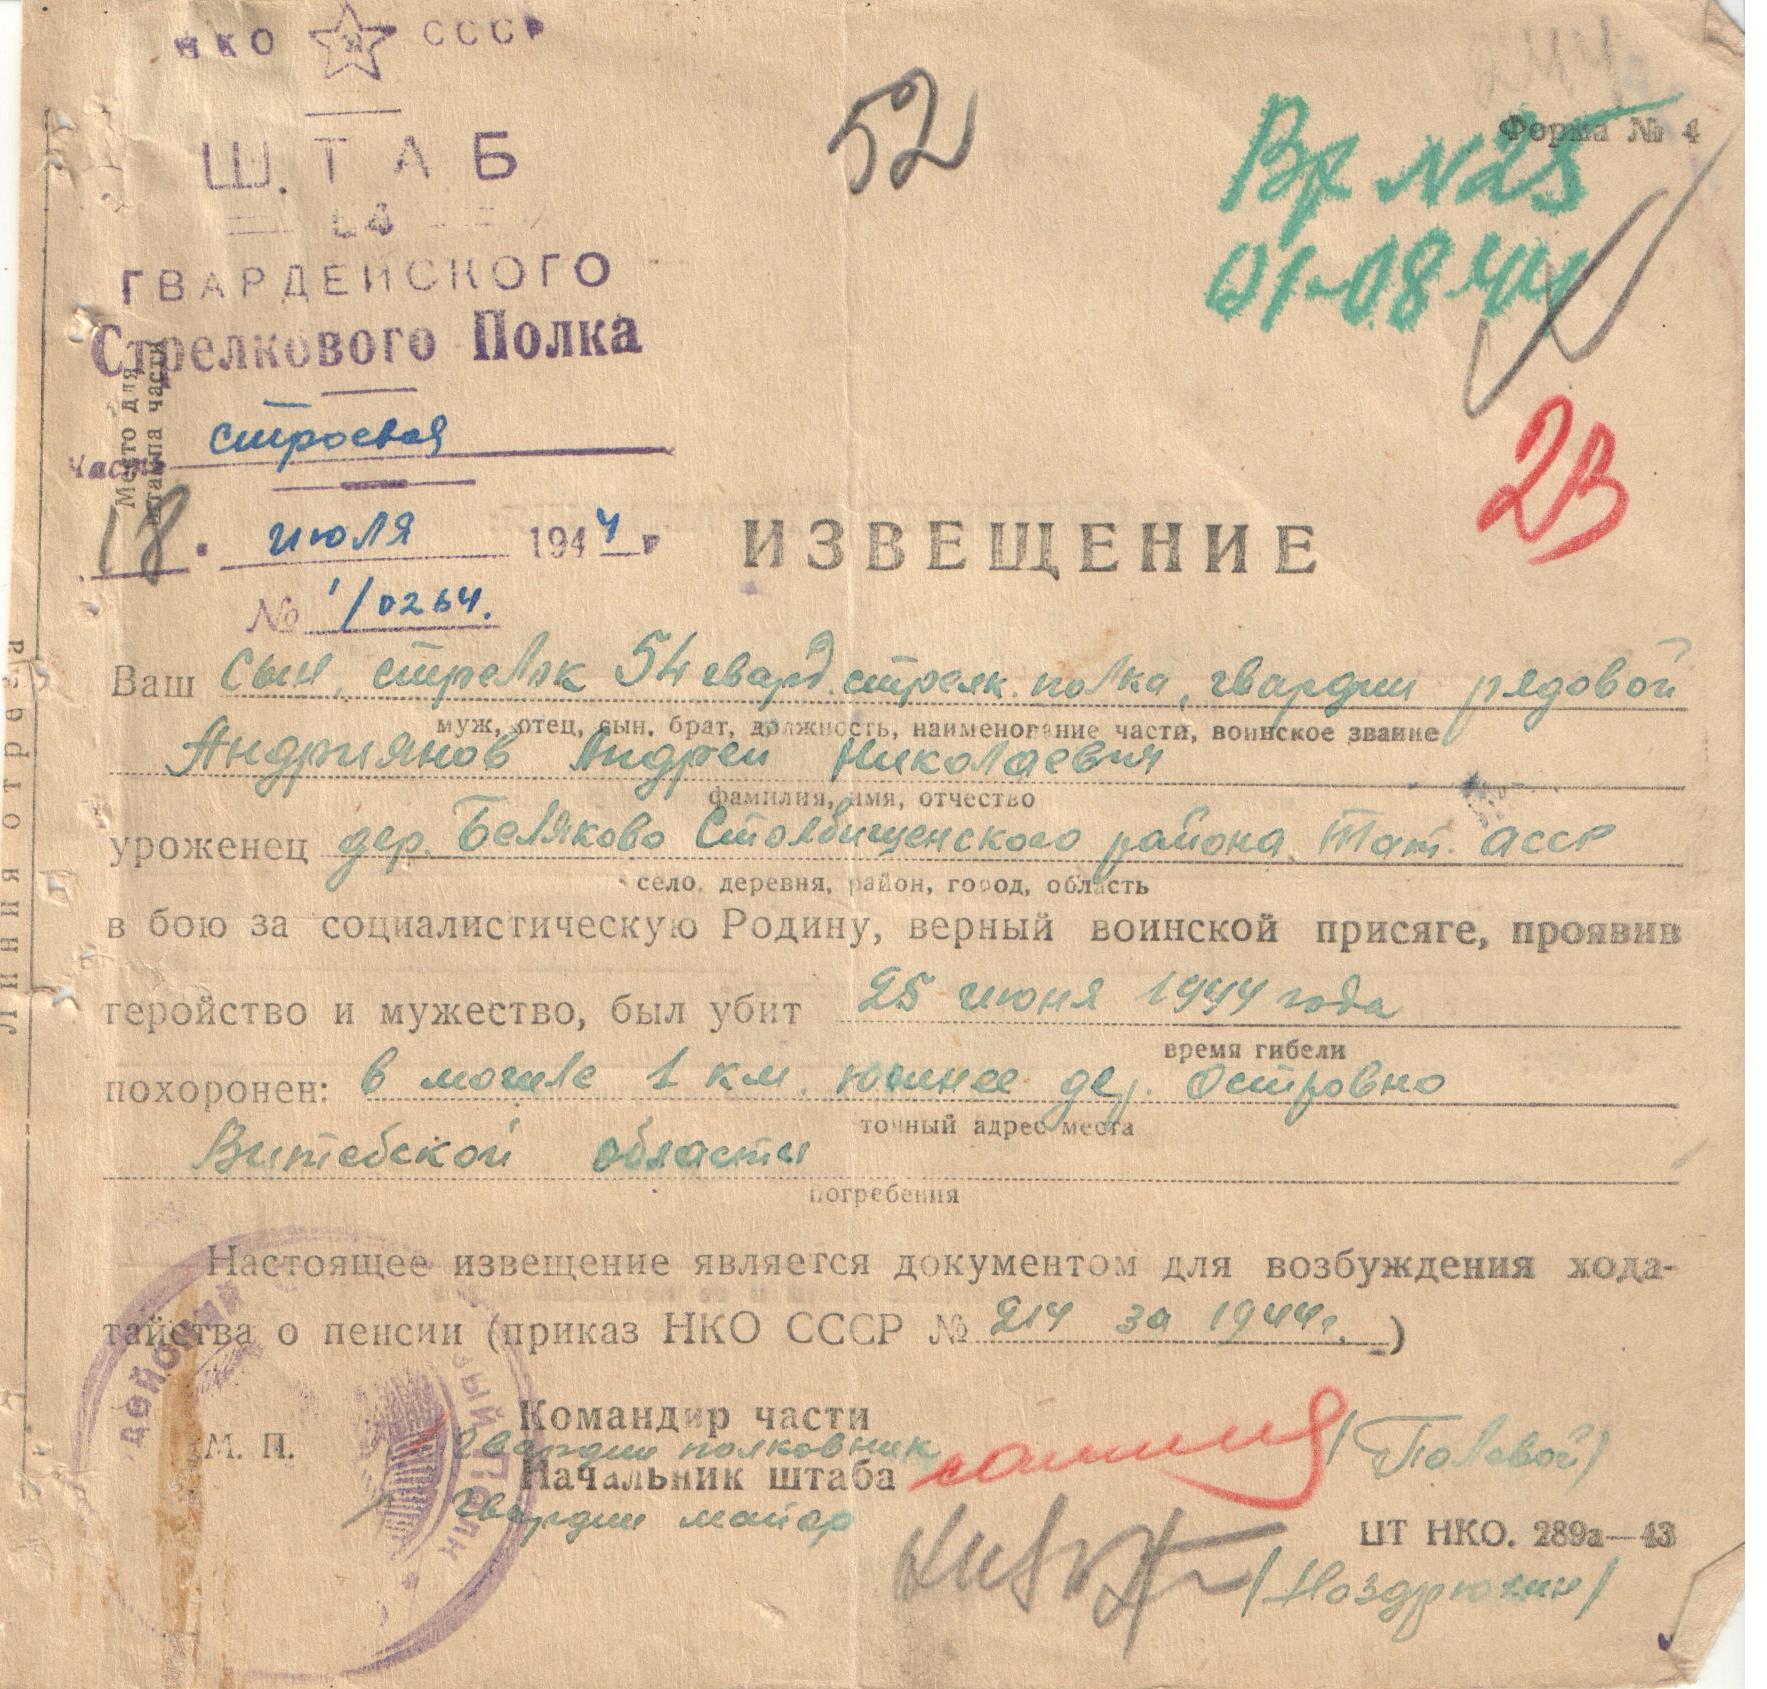 НКО СССР
52
Форма № 4
Вх N25
01-08-44
ШТАБ
ГВАРДЕЙСКОГО
Стрелкового Полка
Место для
штампа части
часть строевая
2В
18. июля 1944 г
ИЗВЕЩЕНИЕ
№ 1/0264.
Линия отреза
Ваш сын, стрелок 54 гвард. стрелк. полка, гвардии рядовой
муж, отец, сын, брат, должность, наименование части, воинское звание
Андриянов Андрей Николаевич
фамилия, имя, отчество
уроженец дер. Беляково Столбищенского района Тат. АССР
село, деревня, район, город, область
в бою за социалистическую Родину, верный воинской присяге, проявив
геройство и мужество, был убит 25 июня 1944 года
время гибели
похоронен: в могиле 1 км. южнее дер. Островно
точный адрес места
Витебской области
погребения
Настоящее извещение является документом для возбуждения хода-
тайства о пенсии (приказ НКО СССР № 214 за 1944г.)
Командир части
М. П.
гвардии полковник (Полевой)
Начальник штаба
гвардии майор
ЦТ НКО. 289а—43
(Ноздрюхин)